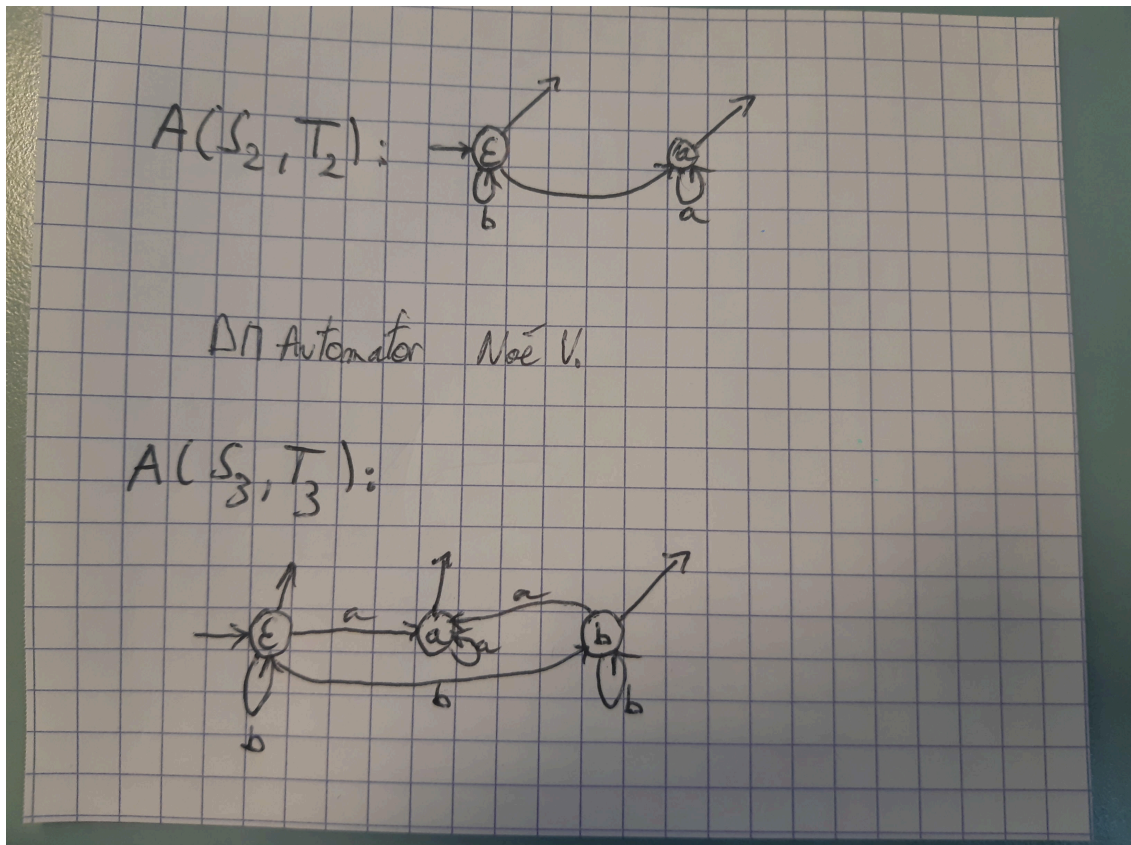 A(S₂, T₂):
ε
a
b
a
DM Automator Noé V.
A(S₃, T₃):
a
a
ε
a
b
a
b
b
b